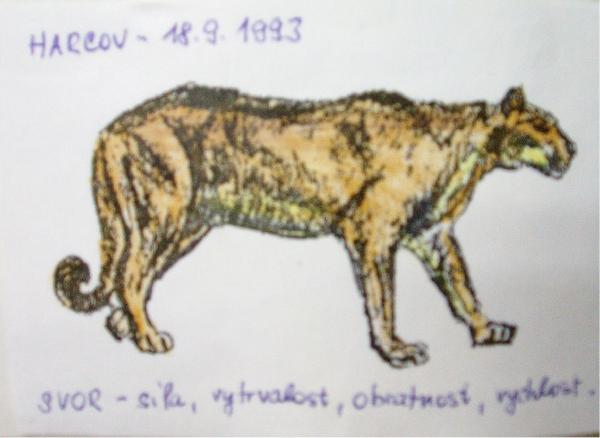 HARCOV - 18.9.1993
SVOR - síla, vytrvalost, obratnost, rychlost.